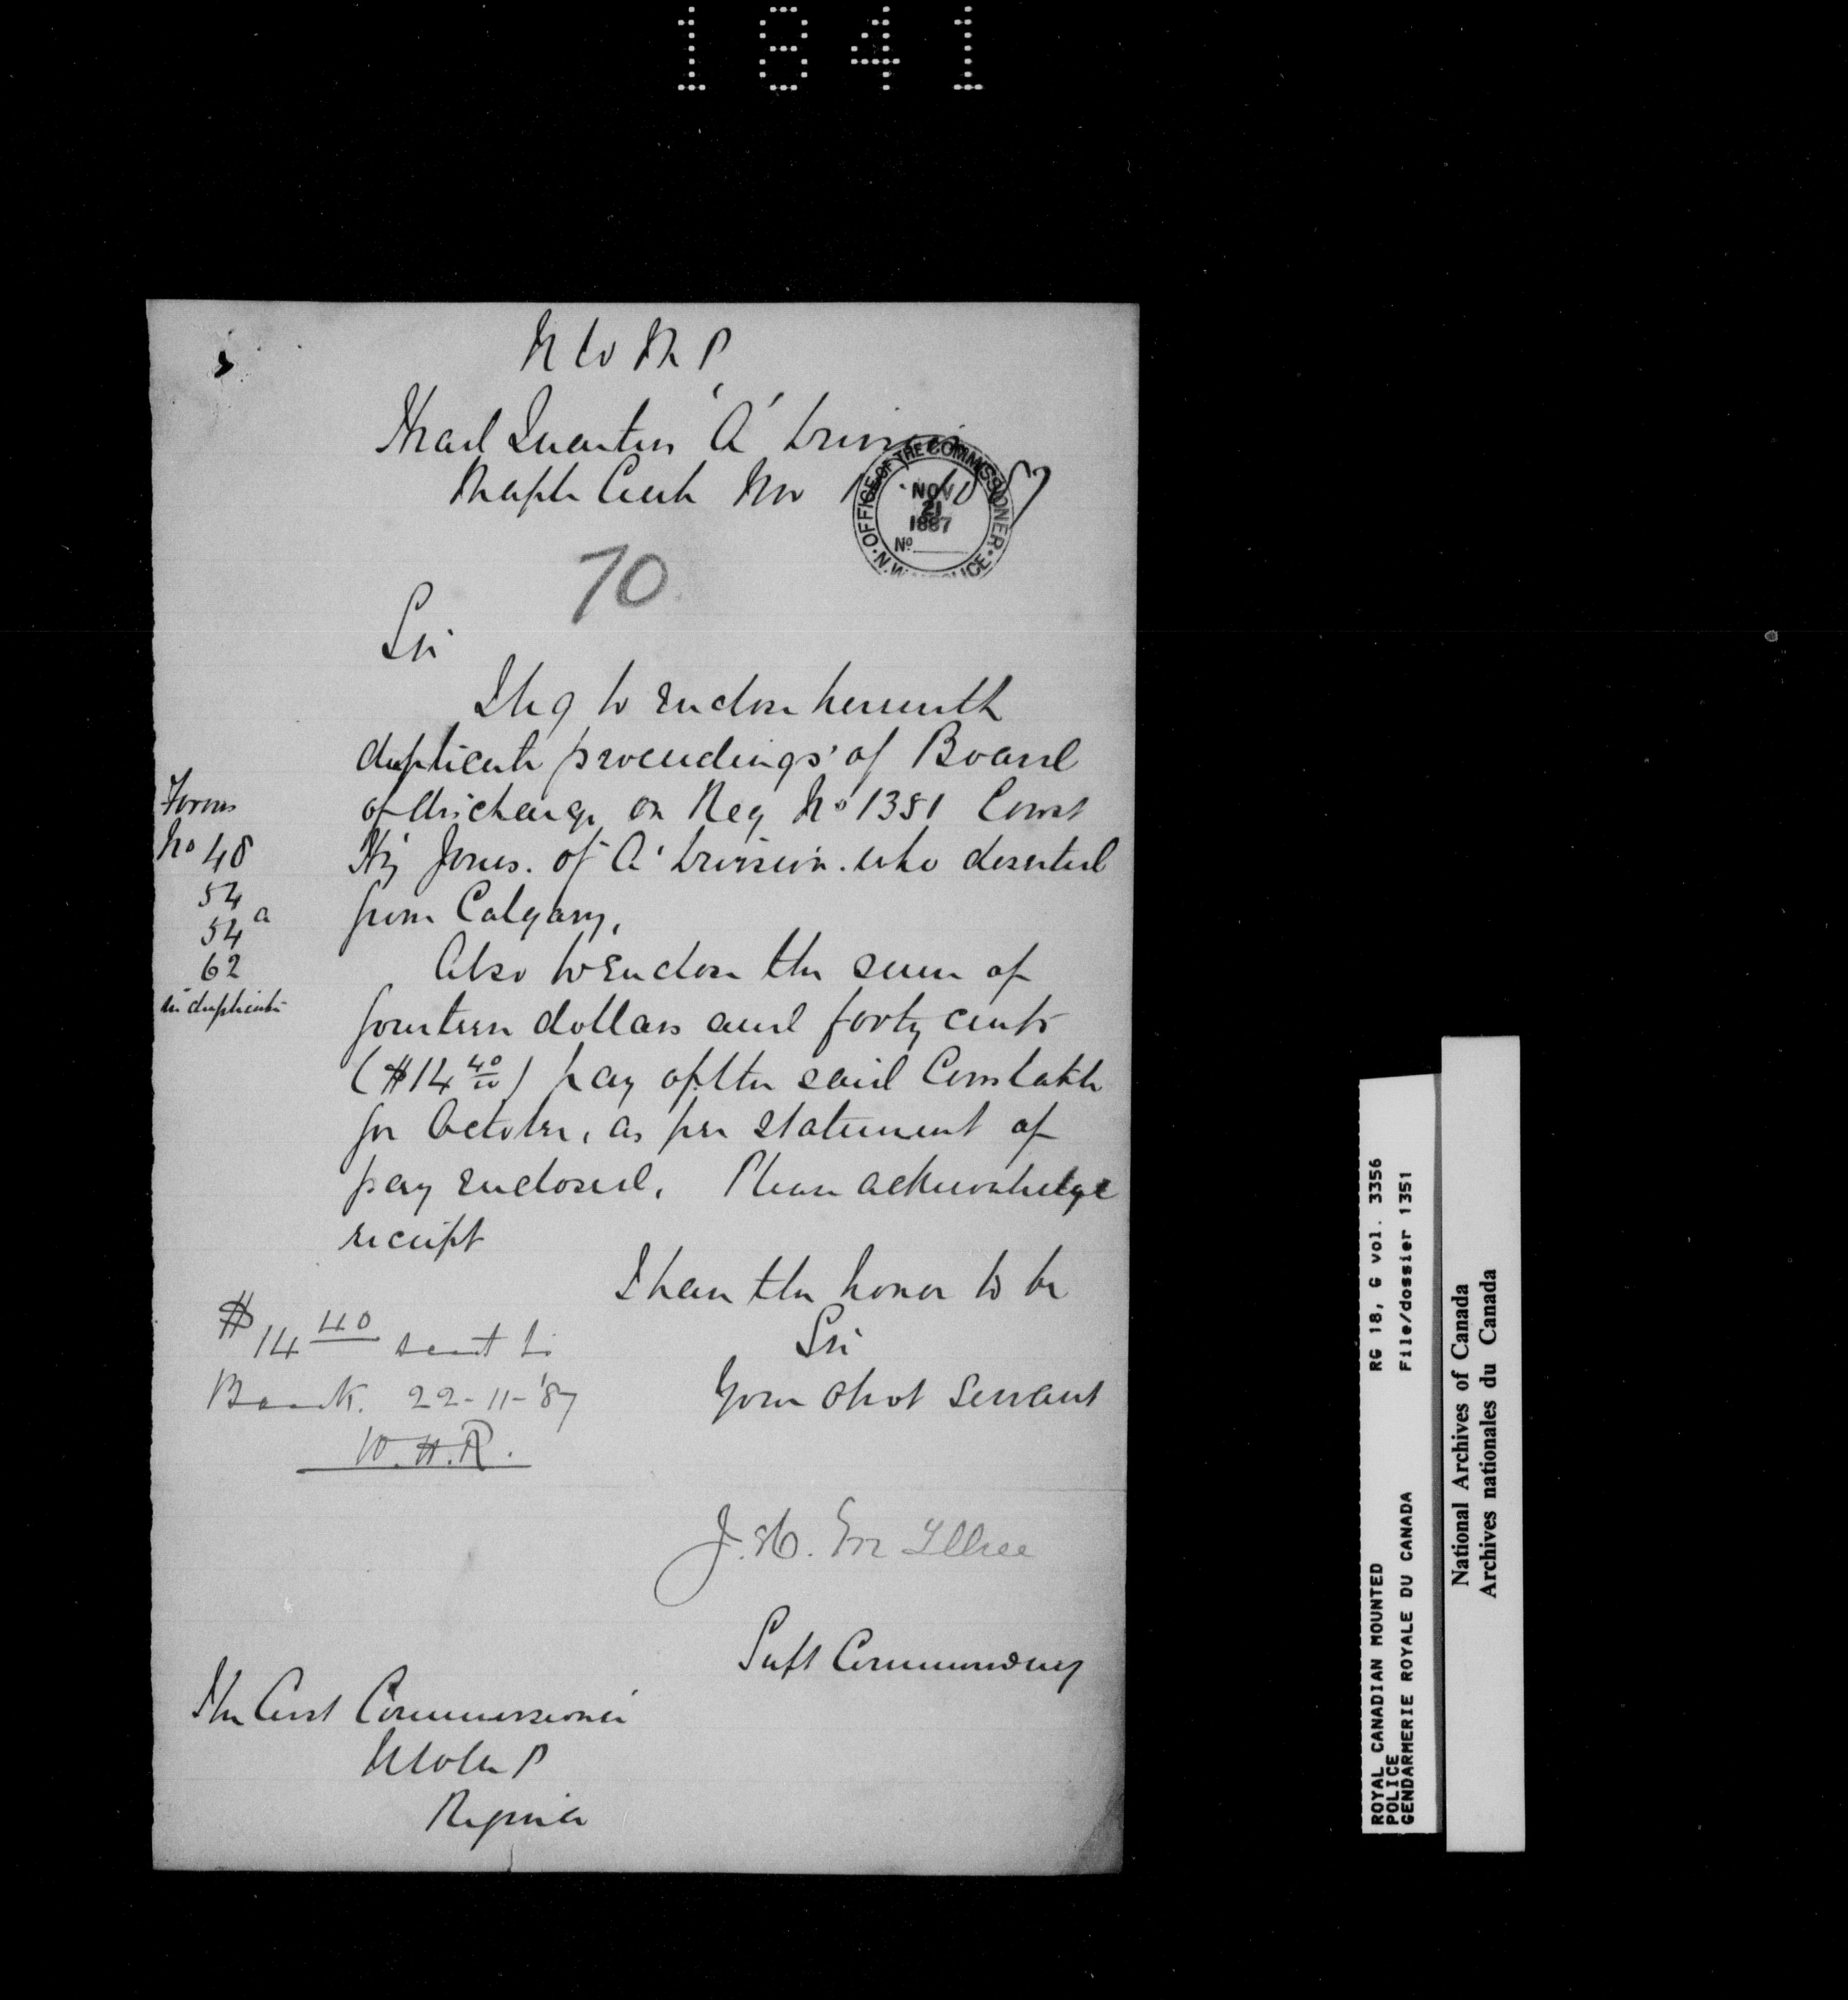 1841
N W M P
Head Quarters 'A' Division
Maple Creek Nov
OFFICE OF THE COMMISSIONER
NOV
21
1887
No
N.W. POLICE
70
Sir
I beg to enclose herewith
duplicate proceedings of Board
of discharge on Reg No 1351 Const
Hy Jones. of 'A' Division. who deserted
from Calgary,
Also to enclose the sum of
fourteen dollars and forty cents
($14 40/100) pay of the said Constable
for October, as per statement of
pay enclosed, Please acknowledge
receipt
Forms
No 48
54
54 a
62
in duplicate
I have the honor to be
Sir
Your obdt servant
$14 40 sent to
Bank. 22-11-'87
W.H.R.
J. H. McIllree
Supt Commanding
The Asst Commissioner
N W M P
Regina
ROYAL CANADIAN MOUNTED RG 18, G vol. 3356
POLICE
GENDARMERIE ROYALE DU CANADA File/dossier 1351
National Archives of Canada
Archives nationales du Canada